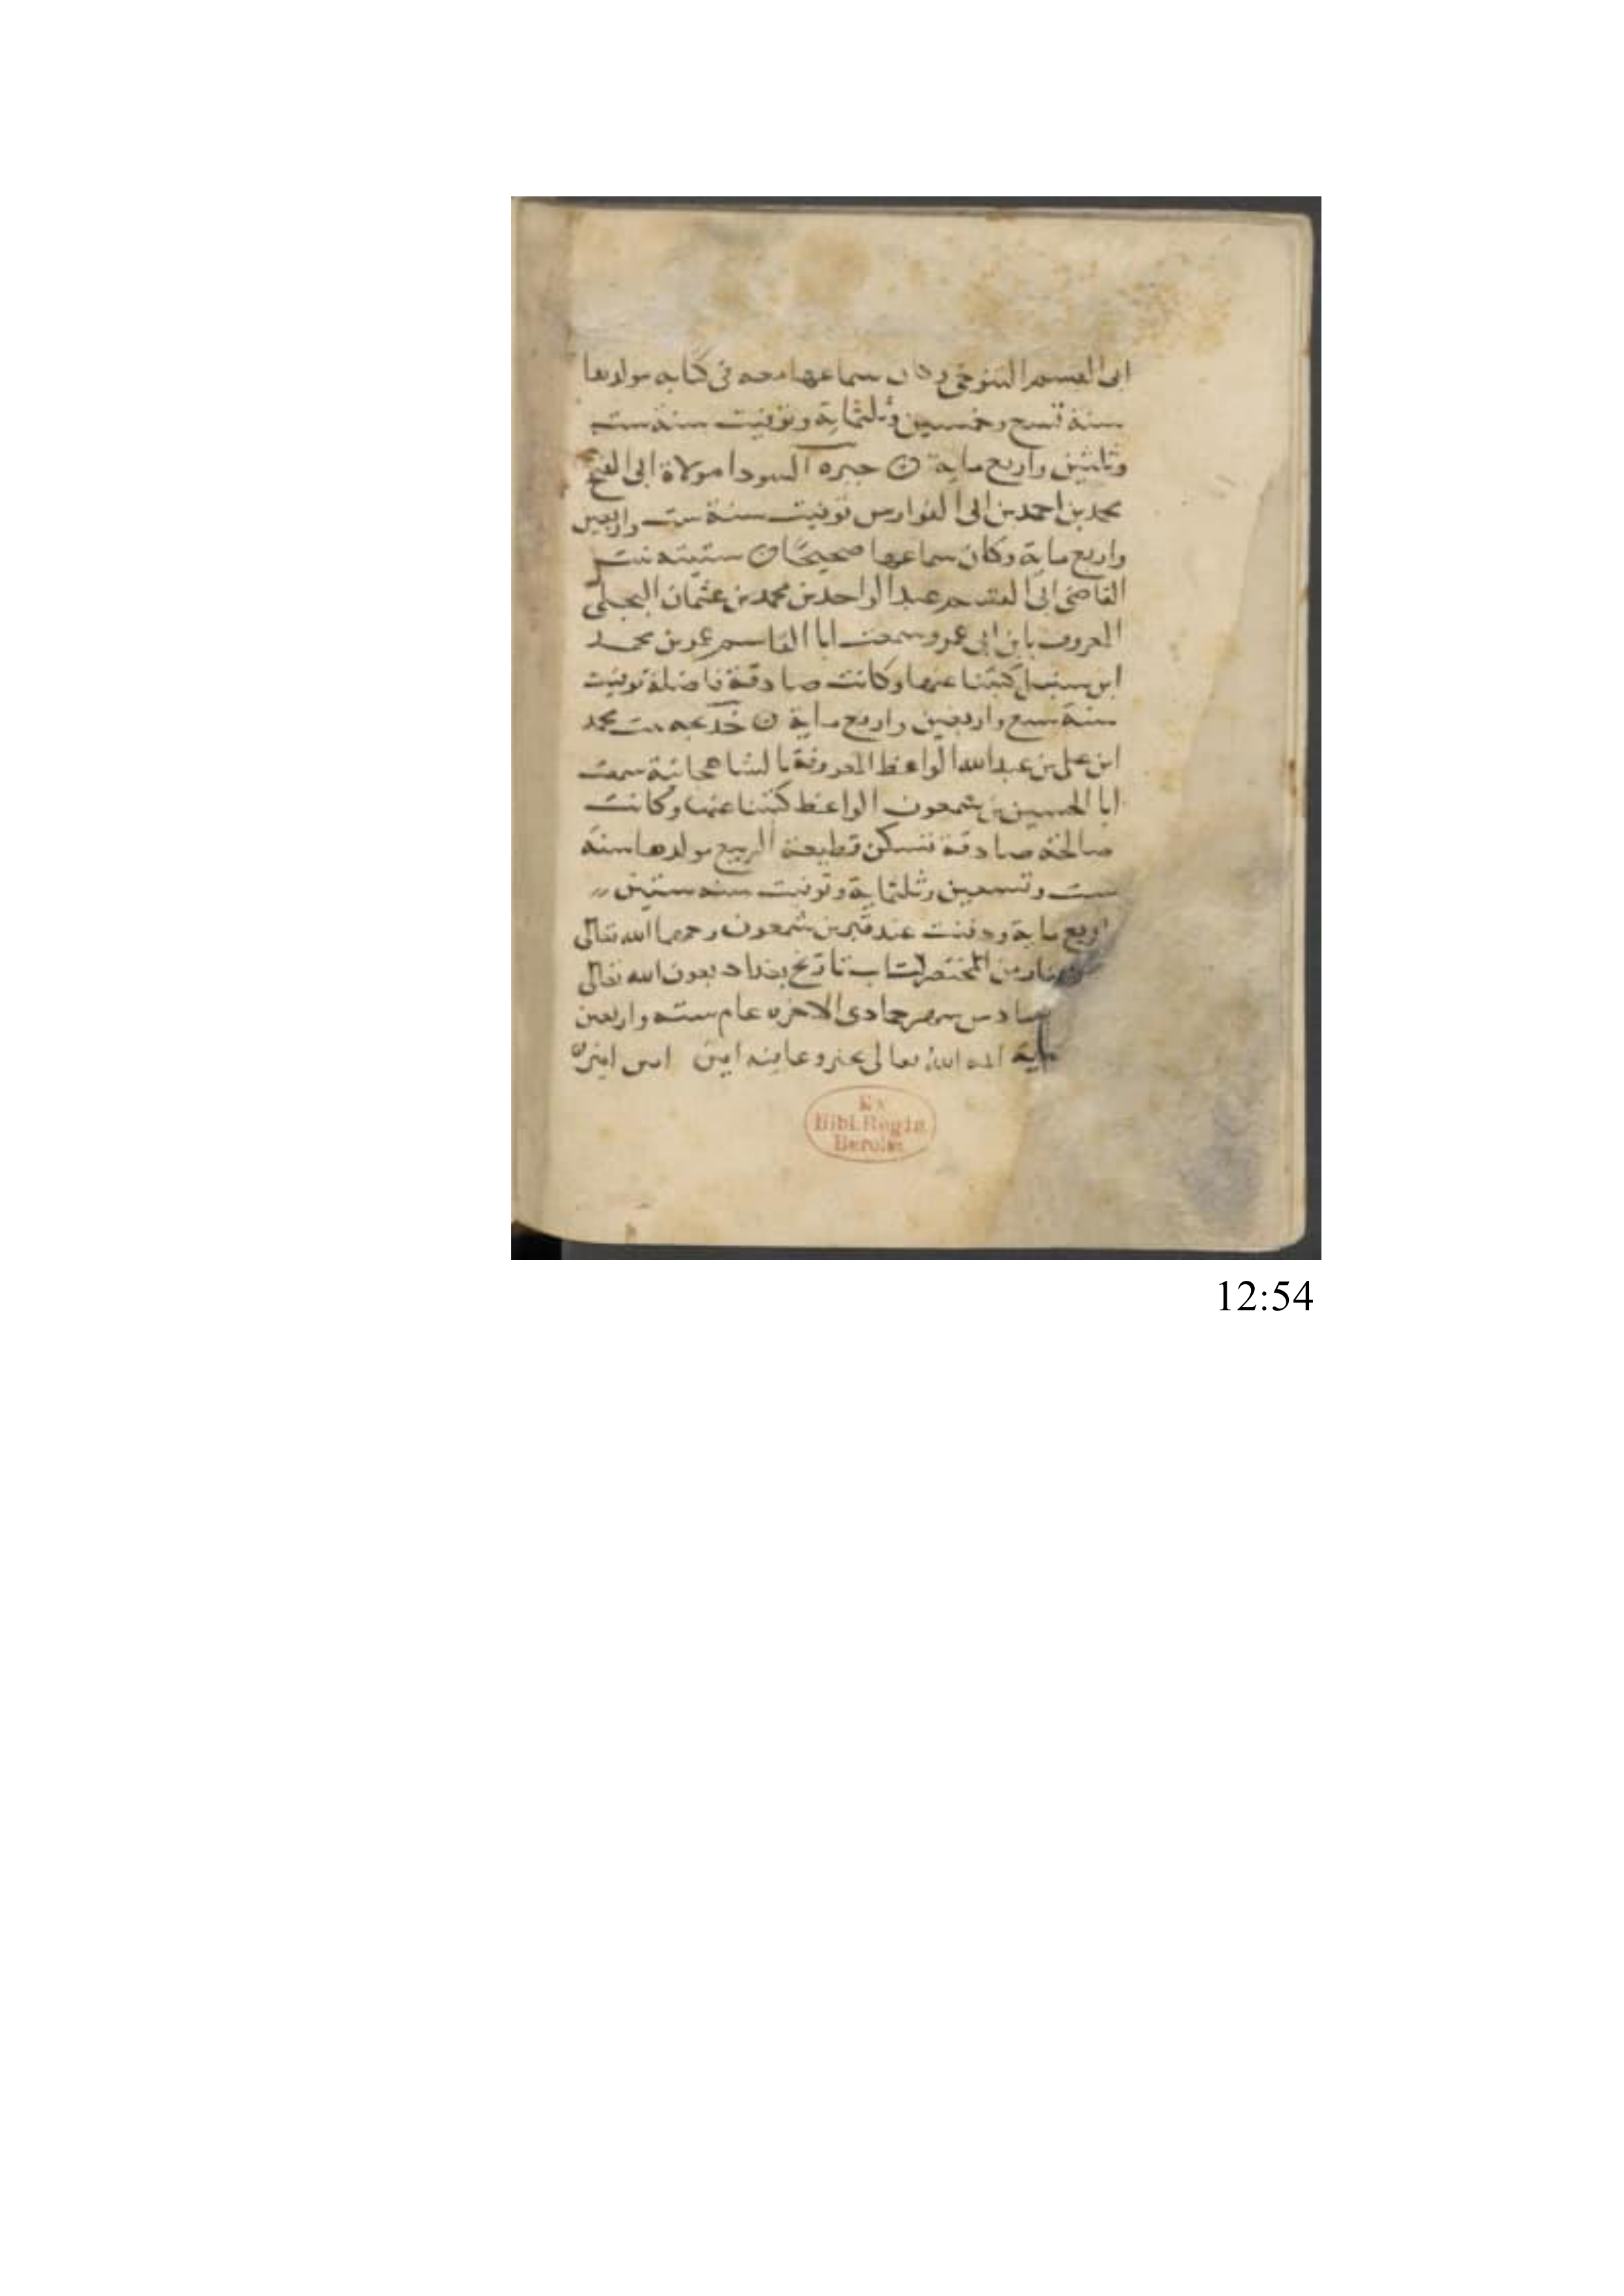 ابى القسم التنوخى وكان سماعها معه فى كتابه مولدها
سنة تسع وخمسين وثلثماية وتوفيت سنة ست
وثلثين واربع ماية ن جبره السودا مولاة ابى الفتح
محمد بن احمد بن ابى الفوارس توفيت سنة ست واربعين
واربع ماية وكان سماعها صحيحًا ن ستيته بنت
القاضى ابى القسم عبد الواحد بن محمد بن عثمان البجلى
المعروف بابن ابى عمرو سمعت ابا القاسم عمر بن محمد
ابن سنبك كتبنا عنها وكانت صادقة فاضلة توفيت
سنة سبع واربعين واربع ماية ن خديجه بنت محمد
ابن على بن عبد الله الواعظ المعروفة بالشاهجانية سمعت
ابا الحسين بن شمعون الواعظ كتبنا عنها وكانت
صالحة صادقة تسكن قطيعة الربيع مولدها سنة
ست وتسعين وثلثماية وتوفيت سنه ستين
اربع ماية ودفنت عند قبر بن شمعون رحمهما الله تعالى
من المختصر لكتاب تاريخ بغداد بعون الله تعالى
سادس شهر جمادى الاخره عام سته واربعين
ماية الله تعالى بخير وعافيه امين امين امين
Ex
Bibl. Regia
Berolin.
12:54